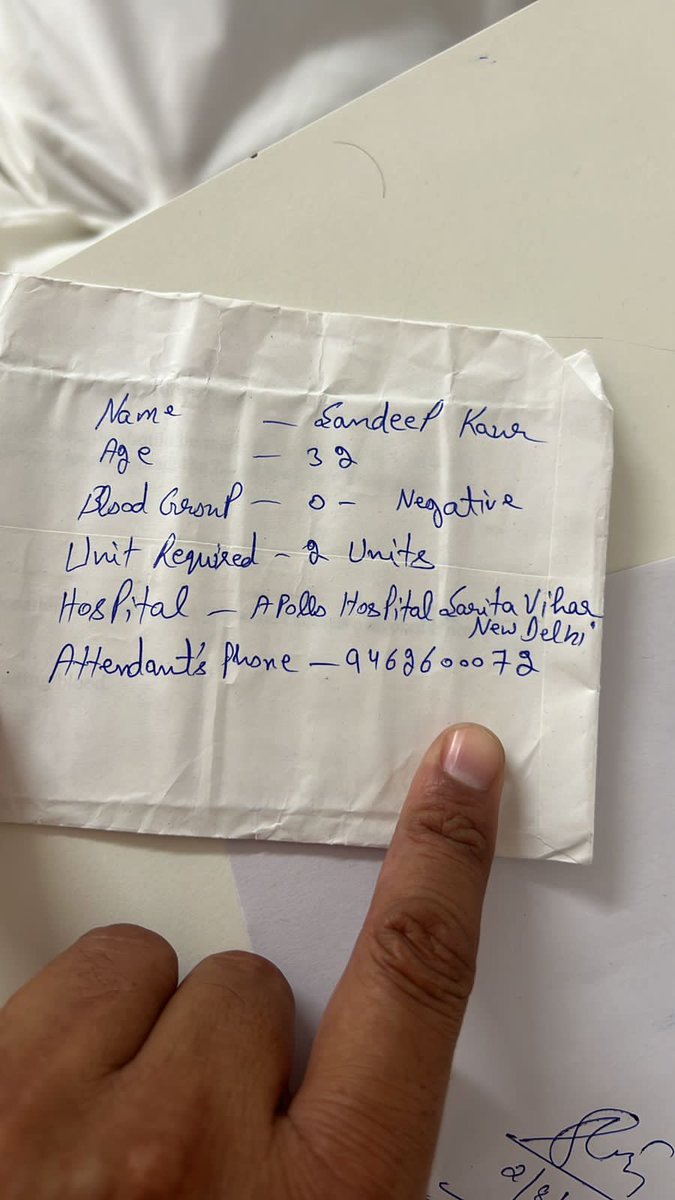 Name - Sandeep Kaur
Age - 32
Blood Group - O - Negative
Unit Required - 2 Units
Hospital - Apollo Hospital Sarita Vihar
New Delhi
Attendant's Phone - 9462600072
2/8/